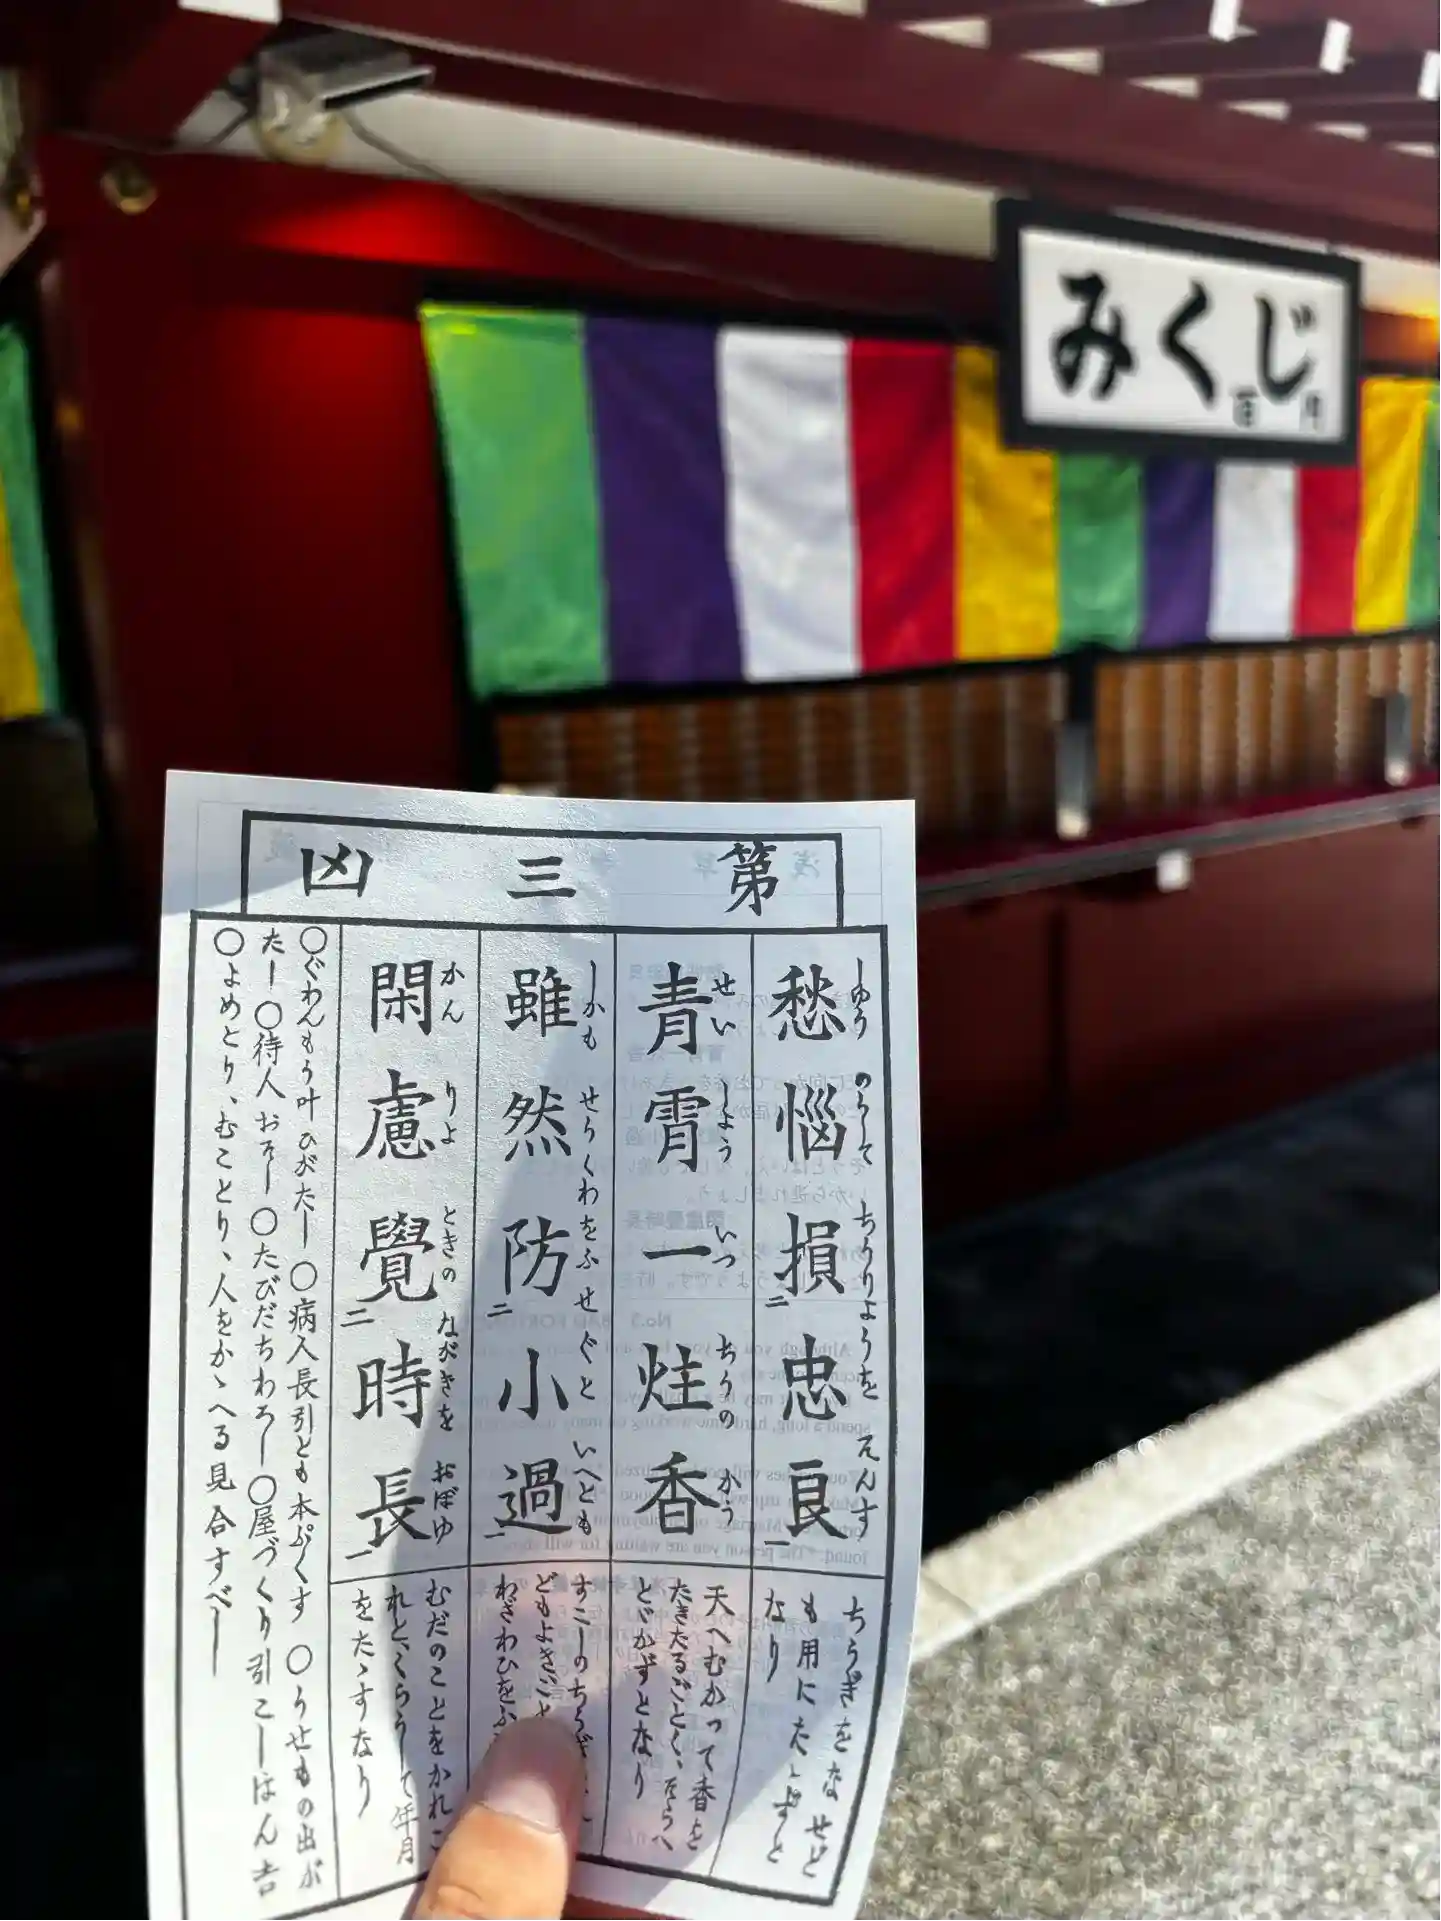 みくじ
百円
第三凶
愁惱損忠良
しゆう のうして ちうりようを そんす
二 一
青霄一炷香
せい しよう いつ ちうの かう
雖然防小過
しかも せうくわをふせぐと いへども
二 一
閑慮覺時長
かん りよ ときの ながきを おぼゆ
二 一
ちうぎをなせど
も用にたゝずと
なり
天へむかつて香を
たきたるごとく、そらへ
とゞかずとなり
すこしのちうぎ
どもよきこと
わざわひをふ
むだのことをかれこ
れと、くらうして年月
をたゝすなり
○ぐわんもう叶ひがたし ○病人長引とも本ぷくす ○うせもの出が
たし ○待人おそし ○たびだちわろし ○屋づくり引こしはん吉
○よめとり、むことり、人をかゝへる見合すべし